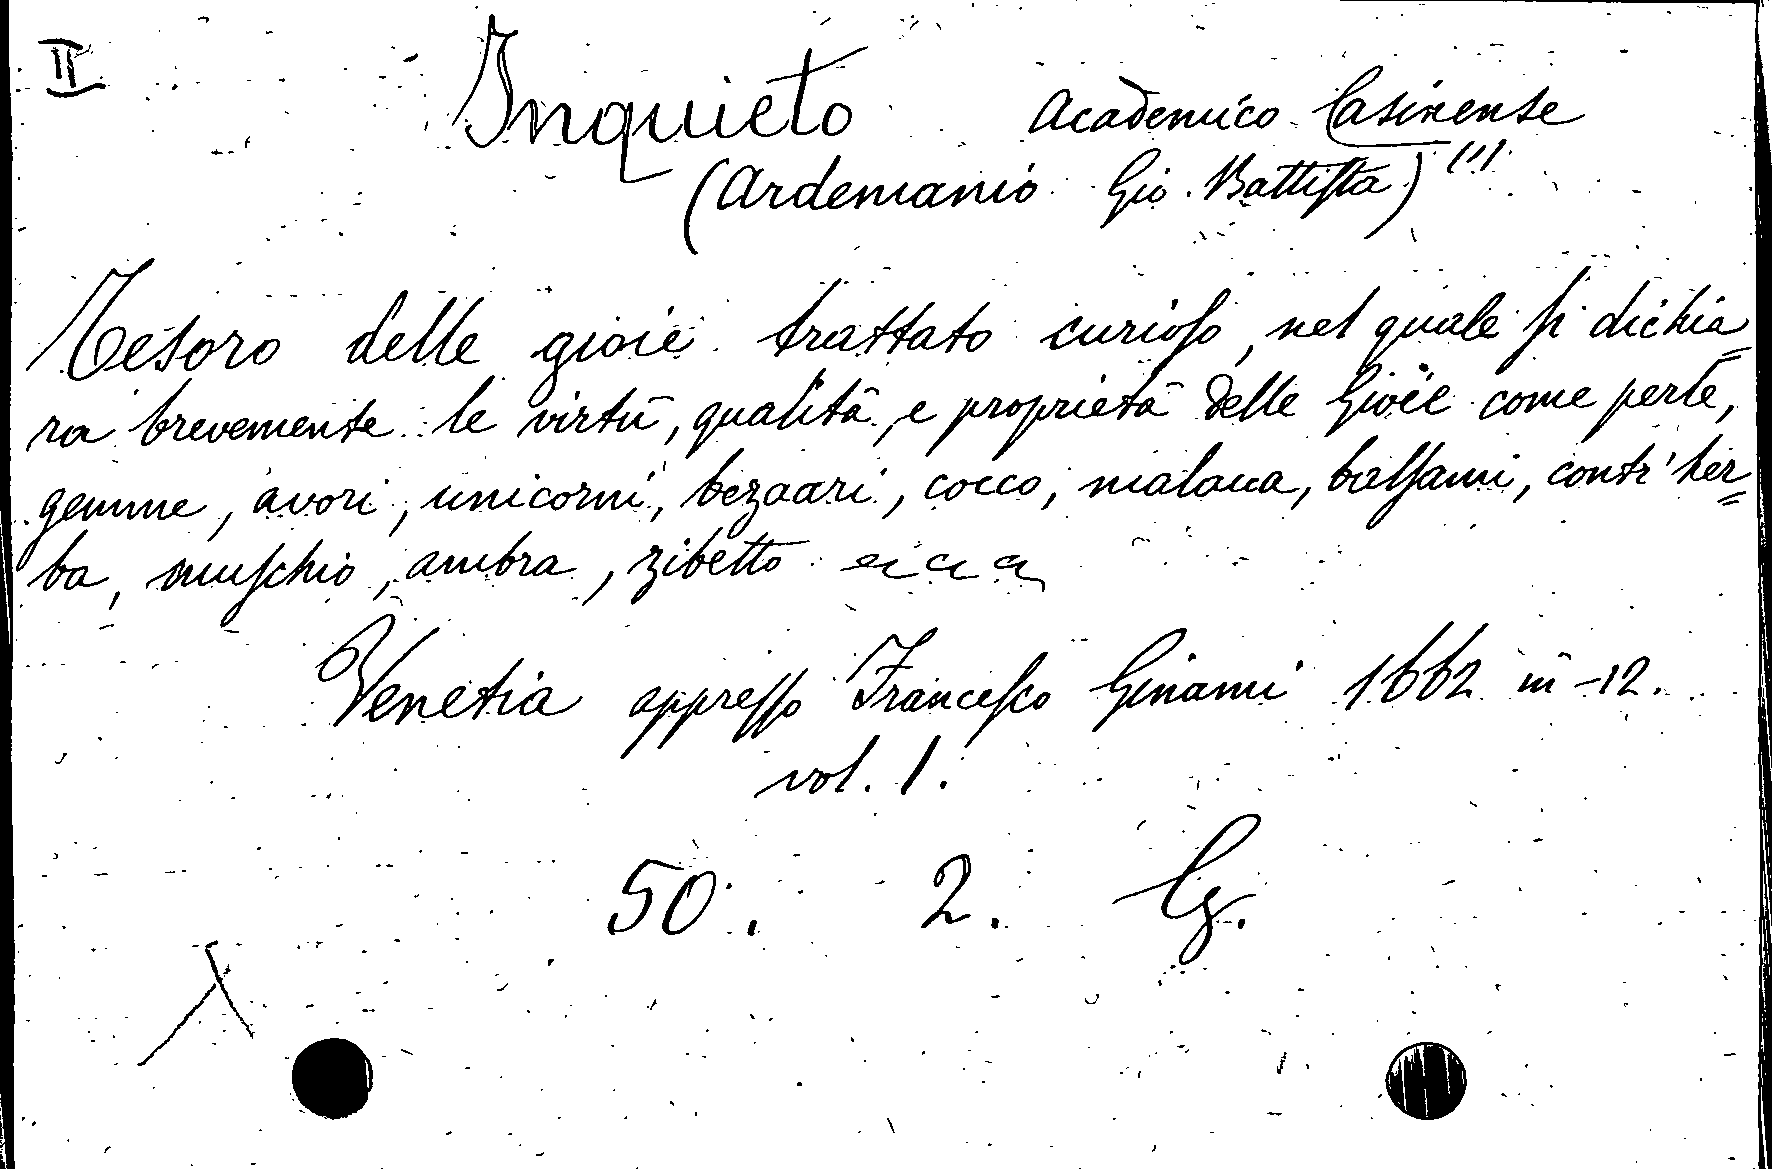 II
Inquieto Academico Casinense
(Ardemanio Gio. Battiſta) (1)
Tesoro delle gioie trattato curioſo, nel quale ſi dichia=
ra brevemente le virtù, qualità, e proprietà delle Gioie come perle,
gemme, avori, unicorni, bezaari, cocco, malacca, balſami, contr'her=
ba, muſchio, ambra, zibetto
Venetia appreſſo Franceſco Ginami 1662 in-12.
vol. 1.
50. 2.